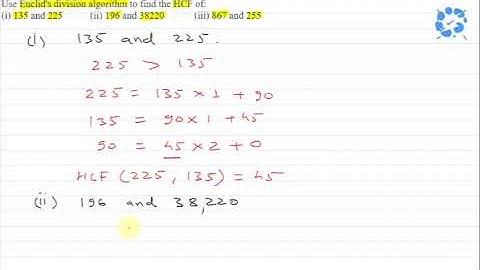 Use Euclid's division algorithm to find the HCF of:
(i) 135 and 225 (ii) 196 and 38220 (iii) 867 and 255
(i) 135 and 225.
225 > 135
225 = 135 × 1 + 90
135 = 90 × 1 + 45
90 = 45 × 2 + 0
HCF (225, 135) = 45
(ii) 196 and 38,220